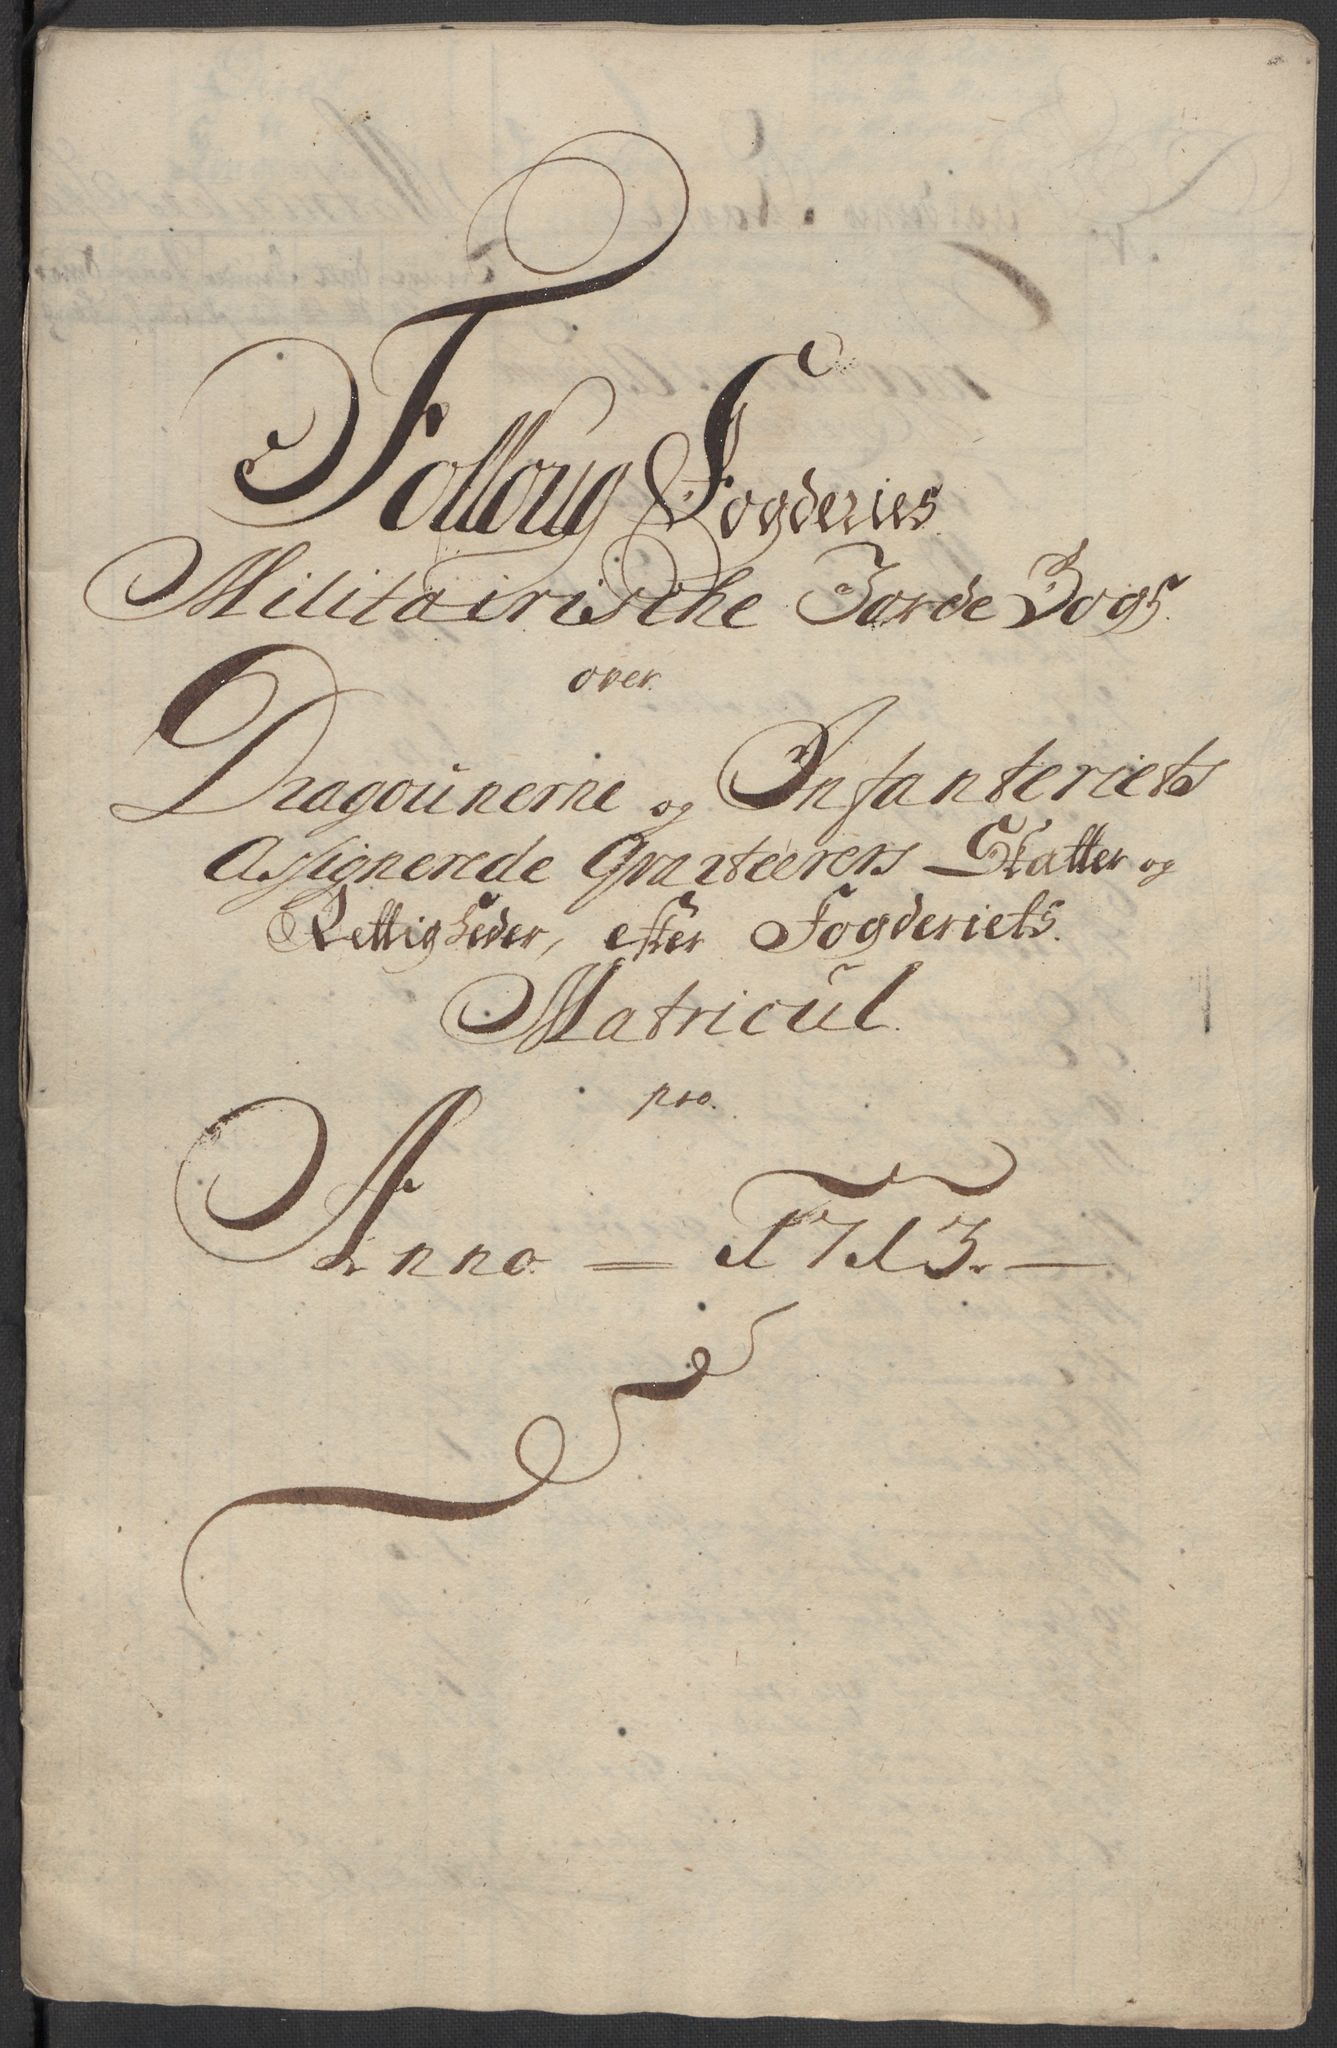 Folloug Fogderies
Militairische Jorde Bogs
over
Dragounerne og Infanteriets
Assignerede Qvarteerers Skatter og
Rettigheder, efter Fogderiets
Matricul
pro
Anno = 1713. —